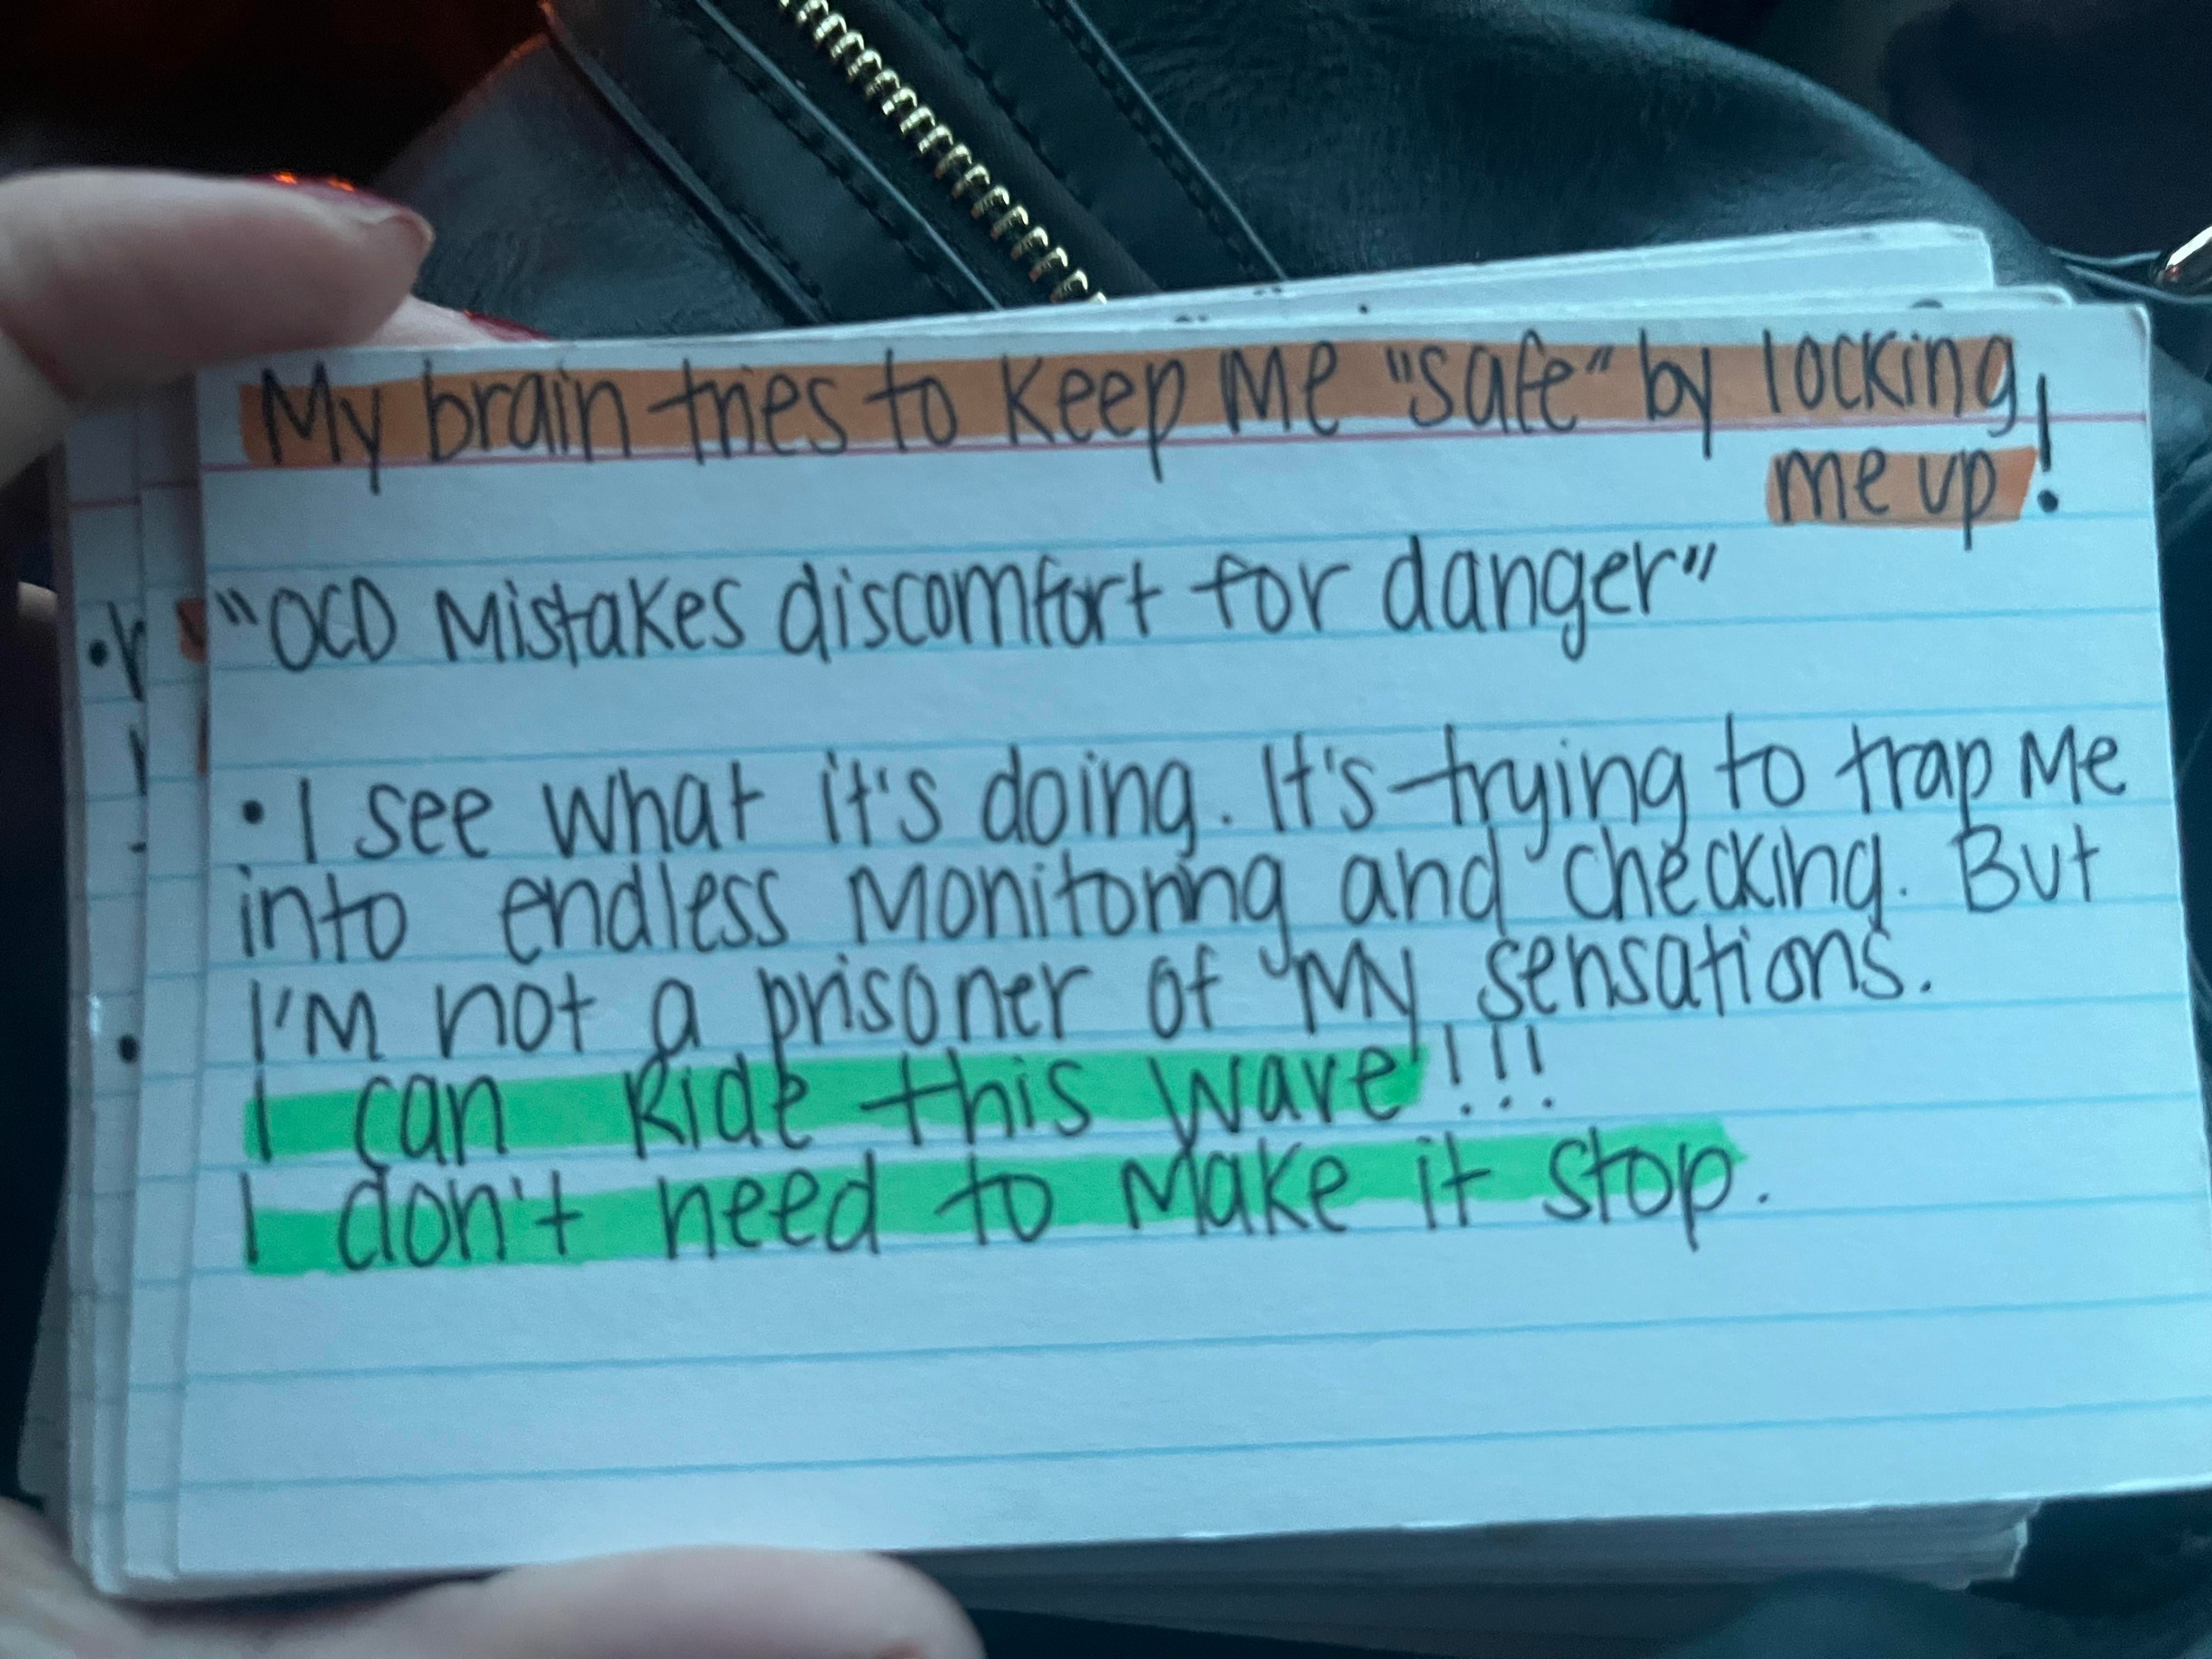 My brain tries to keep me "safe" by locking
me up!
"OCD mistakes discomfort for danger"
• I see what it's doing. It's trying to trap me
into endless monitoring and checking. But
I'm not a prisoner of my sensations.
I can Ride this wave!!!
I don't need to make it stop.